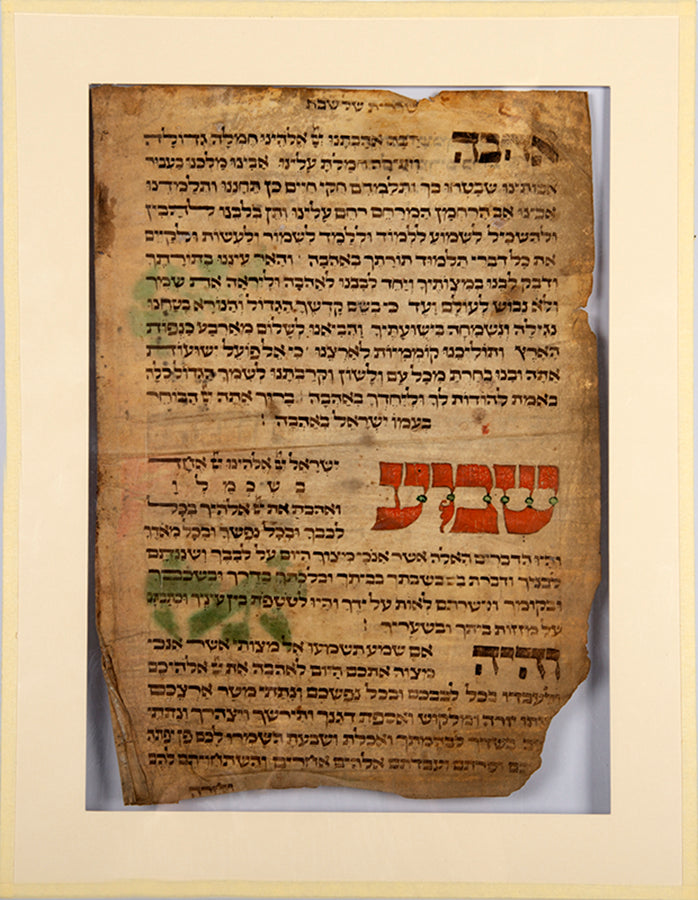 שחרית של שבת
אהבה רבה אהבתנו יי אלהינו חמלה גדולה
ויתירה חמלת עלינו אבינו מלכנו בעבור
אבותינו שבטחו בך ותלמדם חקי חיים כן תחננו ותלמדנו
אבינו אב הרחמן המרחם רחם עלינו ותן בלבנו להבין
ולהשכיל לשמוע ללמוד וללמד לשמור ולעשות ולקיים
את כל דברי תלמוד תורתך באהבה והאר עיננו בתורתך
ודבק לבנו במצותיך ויחד לבבנו לאהבה וליראה את שמך
ולא נבוש לעולם ועד כי בשם קדשך הגדול והנורא בטחנו
נגילה ונשמחה בישועתיך והביאנו לשלום מארבע כנפות
הארץ ותוליכנו קוממיות לארצנו כי אל פועל ישועות
אתה ובנו בחרת מכל עם ולשון וקרבתנו לשמך הגדול סלה
באמת להודות לך וליחדך באהבה ברוך אתה יי הבוחר
בעמו ישראל באהבה :
שמע ישראל יי אלהינו יי אחד
ב ש כ מ ל ו
ואהבת את יי אלהיך בכל
לבבך ובכל נפשך ובכל מאדך
והיו הדברים האלה אשר אנכי מצוך היום על לבבך ושננתם
לבניך ודברת בם בשבתך בביתך ובלכתך בדרך ובשכבך
ובקומך וקשרתם לאות על ידך והיו לטטפת בין עיניך וכתבתם
על מזזות ביתך ובשעריך :
והיה אם שמע תשמעו אל מצותי אשר אנכי
מצוה אתכם היום לאהבה את יי אלהיכם
ולעבדו בכל לבבכם ובכל נפשכם ונתתי מטר ארצכם
בעתו יורה ומלקוש ואספת דגנך ותירשך ויצהרך ונתתי
עשב בשדך לבהמתך ואכלת ושבעת השמרו לכם פן יפתה
לבבכם וסרתם ועבדתם אלהים אחרים והשתחויתם להם
וחרה